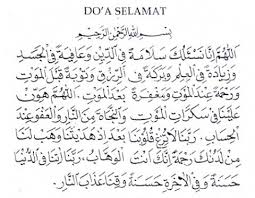 DO'A SELAMAT
بِسْمِ اللهِ الرَّحْمٰنِ الرَّحِيْمِ
اَللّٰهُمَّ اِنَّا نَسْئَلُكَ سَلَامَةً فِى الدِّيْنِ وَعَافِيَةً فِى الْجَسَدِ
وَزِيَادَةً فِى الْعِلْمِ وَبَرَكَةً فِى الرِّزْقِ وَتَوْبَةً قَبْلَ الْمَوْتِ
وَرَحْمَةً عِنْدَ الْمَوْتِ وَمَغْفِرَةً بَعْدَ الْمَوْتِ. اَللّٰهُمَّ هَوِّنْ
عَلَيْنَا فِى سَكَرَاتِ الْمَوْتِ وَالنَّجَاةَ مِنَ النَّارِ وَالْعَفْوَ عِنْدَ
الْحِسَابِ. رَبَّنَا لَا تُزِغْ قُلُوْبَنَا بَعْدَ اِذْ هَدَيْتَنَا وَهَبْ لَنَا
مِنْ لَدُنْكَ رَحْمَةً اِنَّكَ اَنْتَ الْوَهَّابُ. رَبَّنَا اٰتِنَا فِى الدُّنْيَا
حَسَنَةً وَفِى الْاٰخِرَةِ حَسَنَةً وَقِنَا عَذَابَ النَّارِ.